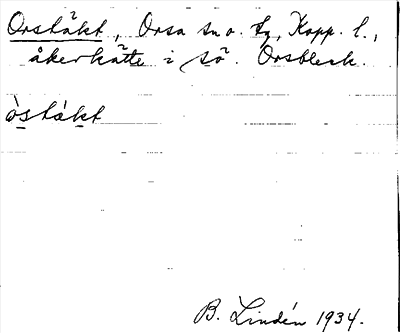 Orstäkt, Orsa sn o. tg, Kopp. l.,
åkerhätte i sö. Orsbleck.
òstäkt
B. Lindén 1934.